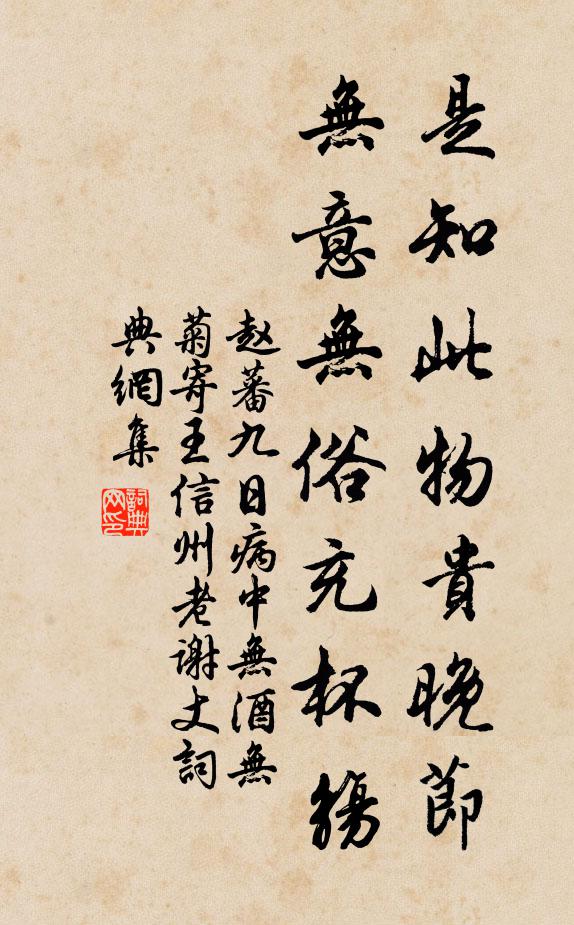 是知此物貴晚節
無意無俗充杯觴
赵蕃九日病中無酒無
菊寄王信州老谢丈詞
典網集
詞典
网印